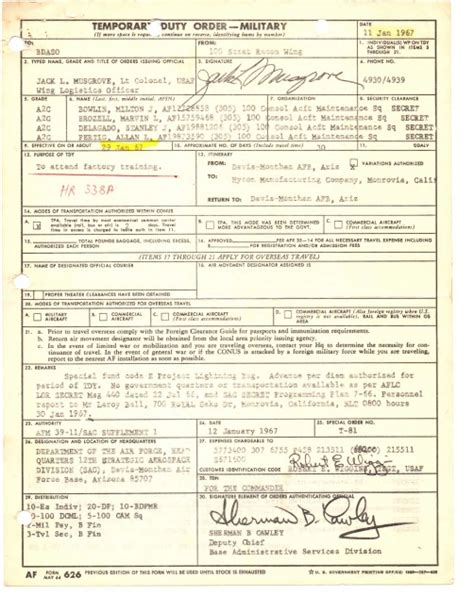 TEMPORARY DUTY ORDER—MILITARY
(If more space is required, continue on reverse, identifying items by number)
DATE
11 Jan 1967
TO
BDASO
FROM
100 Strat Recon Wing
1. INDIVIDUAL(S) WP ON TDY AS SHOWN IN ITEMS 5 THROUGH 21.
2. TYPED NAME, GRADE AND TITLE OF ORDERS ISSUING OFFICIAL
JACK L. MUSGROVE, Lt Colonel, USAF
Wing Logistics Officer
3. SIGNATURE
4. PHONE
4930/4939
5. GRADE
6. NAME (Last, first, middle initial, AFSN)
7. ORGANIZATION
8. SECURITY CLEARANCE
A2C BOWLIN, MILTON J, (305) 100 Consol Acft Maintenance Sq SECRET
A2C BROZELL, MARVIN L, AF15759468 (305) 100 Consol Acft Maintenance Sq SECRET
A2C DELAGADO, STANLEY J, (305) 100 Consol Acft Maintenance Sq SECRET
A2C ALLAN L, (305) 100 Consol Acft Maintenance Sq SECRET
9. EFFECTIVE ON OR ABOUT
29 Jan 67
10. APPROXIMATE NO. OF DAYS (Include travel time)
30
11.
12. PURPOSE OF TDY
To attend factory training.
HR 338A
13. ITINERARY
FROM: Davis-Monthan AFB, Ariz
X VARIATIONS AUTHORIZED
TO: Byron Manufacturing Company, Monrovia, Calif
RETURN TO: Davis-Monthan AFB, Ariz
14. MODES OF TRANSPORTATION AUTHORIZED WITHIN CONUS
A. X
B. TPA. THIS MODE HAS BEEN DETERMINED MORE ADVANTAGEOUS TO THE GOVT.
C. COMMERCIAL AIRCRAFT (First class accommodations)
15. TOTAL POUNDS BAGGAGE, INCLUDING EXCESS, AUTHORIZED EACH PERSON
16. APPROVED PER AFR 30-14 FOR ALL NECESSARY TRAVEL EXPENSE INCLUDING FOR REGISTRATION AND/OR ADMISSION FEES
(ITEMS 17 THROUGH 21 APPLY FOR OVERSEAS TRAVEL)
17. NAME OF DESIGNATED OFFICIAL COURIER
18. AIR MOVEMENT DESIGNATOR ASSIGNED IS
19. PROPER THEATER CLEARANCES HAVE BEEN OBTAINED
20. MODES OF TRANSPORTATION AUTHORIZED FOR OVERSEAS TRAVEL
A. MILITARY AIRCRAFT
B. FOREIGN AIRCRAFT
C. COMMERCIAL AIRCRAFT (First class accommodations)
D. COMMERCIAL AIRCRAFT (Also foreign registry when U.S. registry is not available), RAIL AND BUS WITHIN OS AREA
21. a. Prior to travel overseas comply with the Foreign Clearance Guide for passports and immunization requirements.
b. Return air movement designator will be obtained from the local area priority issuing agency.
c. In the event of limited war or mobilization and you are on overseas travel, contact your Hq to determine the necessity for continuance of travel. In the event of general war or if the CONUS is attacked by a foreign military force while you are traveling, report to the nearest AF installation as soon as possible.
22. REMARKS
Special fund code E Project Lightning Bug. Advance per diem authorized for
period of TDY. No government quarters or transportation available as per AFLC
LOR SECRET Msg 440 dated 22 Jul 66, and SAC SECRET Programming Plan 7-66. Personnel
report to Mr Leroy Ball, 700 Royal Oaks Dr, Monrovia, California, NLT 0800 hours
30 Jan 1967.
23. AUTHORITY
AFM 39-11/SAC SUPPLEMENT 1
24. DATE
12 January 1967
25. SPECIAL ORDER NO.
T-81
26. DESIGNATION AND LOCATION OF HEADQUARTERS
DEPARTMENT OF THE AIR FORCE, HEAD-
QUARTERS 12TH STRATEGIC AEROSPACE
DIVISION (SAC), Davis-Monthan Air
Force Base, Arizona 85707
27. EXPENSES CHARGEABLE TO
5773400 307 6355 215511
2511600
CUSTOMER IDENTIFICATION CODE
28. TDN
FOR THE COMMANDER
29. DISTRIBUTION
10-Ea Indiv; 20-DF; 10-BDFMR
20-100 DCML; 5-100 CAM Sq
2-Mil Pay, B Fin
3-Tvl Sec, B Fin
30. SIGNATURE ELEMENT OF ORDERS AUTHENTICATING OFFICIAL
Sherman B. Cawley
SHERMAN B CAWLEY
Deputy Chief
Base Administrative Services Division
AF FORM MAY 64 626 PREVIOUS EDITION OF THIS FORM WILL BE USED UNTIL STOCK IS EXHAUSTED
☆ U. S. GOVERNMENT PRINTING OFFICE